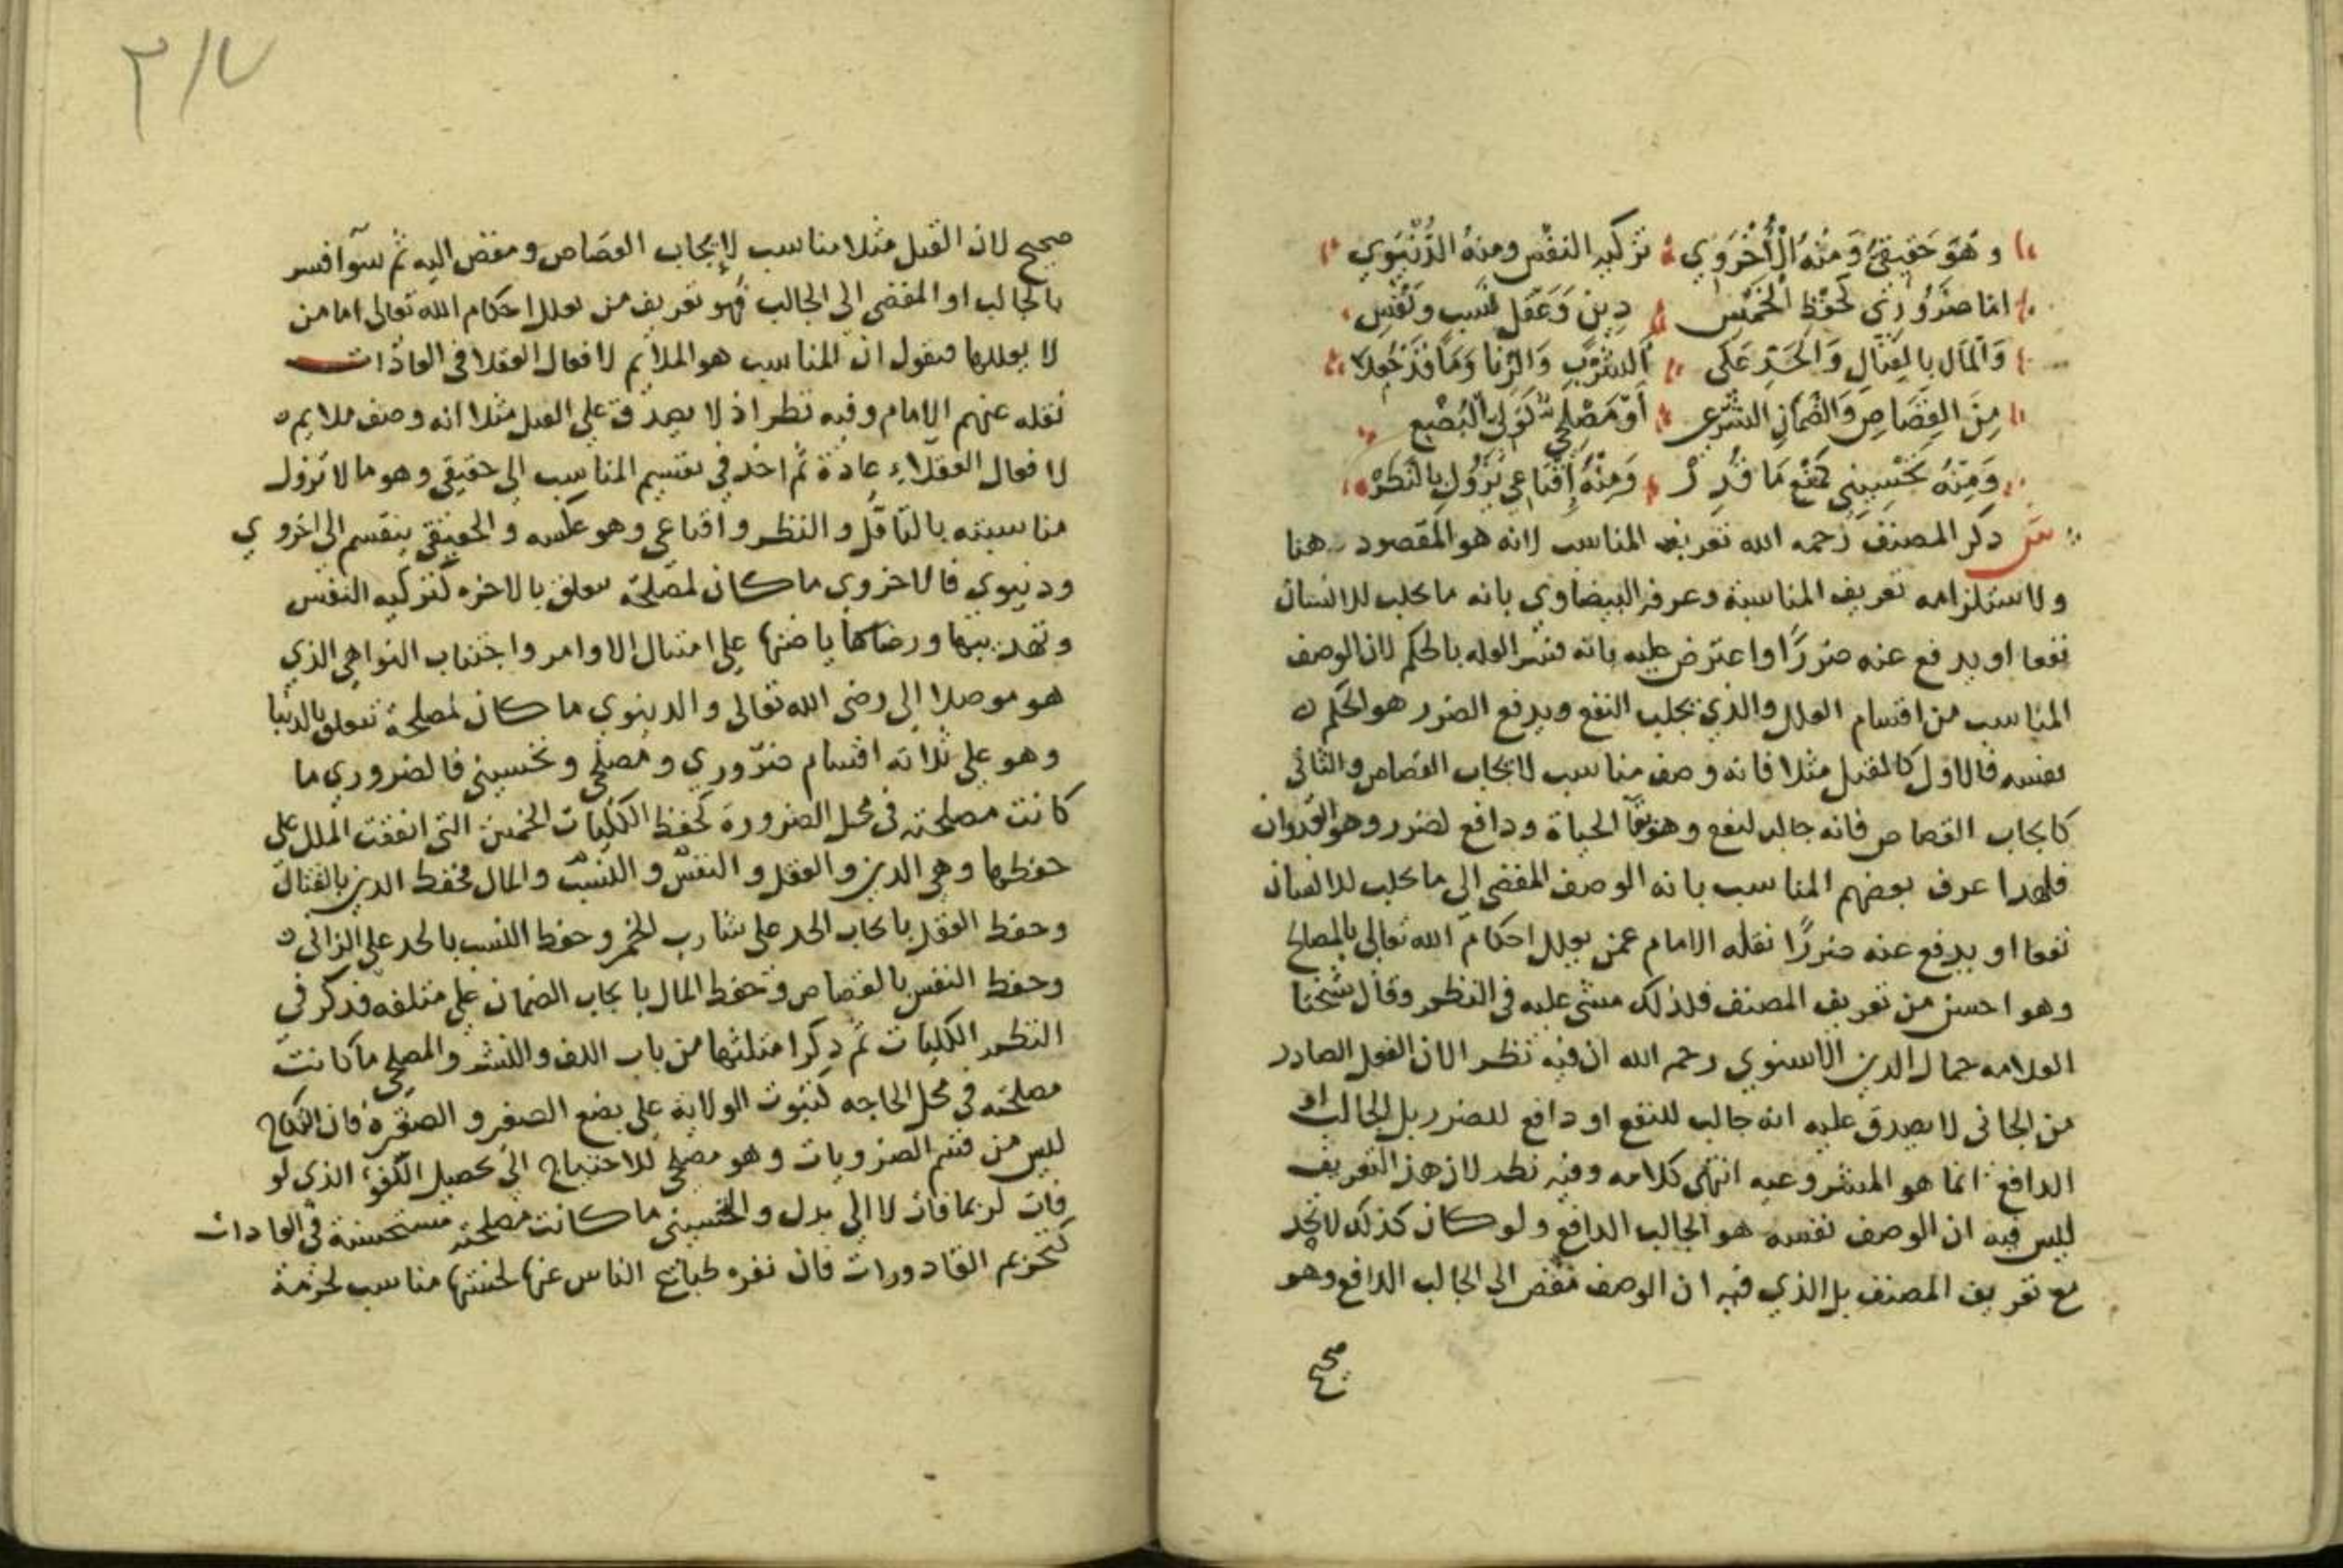 وهو حقيقي ومنه الأخروي تزكية النفس ومنه الدنيوي
اما ضروري كحفظ الخمس دين وعقل نسب ونفس
والمال بالقتال والحد على الشرب والزنا وما قد جعلا
من القصاص والضمان الشرعي أو مصلحي كولي البضع
ومنه تحسيني كمنع ما قذر ومنه إقناعي يزول بالنظر
ش ذكر المصنف رحمه الله تعريف المناسب لانه هو المقصود هنا
ولاستلزامه تعريف المناسبة وعرفه البيضاوي بانه ما يجلب للانسان
نفعا او يدفع عنه ضررا واعترض عليه بانه فسر العله بالحكم لان الوصف
المناسب من اقسام العلل والذي يجلب النفع ويدفع الضرر هو الحكم
نفسه فالاول كالقتل مثلا فانه وصف مناسب لايجاب القصاص والثاني
كايجاب القصاص فانه جالب لنفع وهو بقآ الحياة ودافع لضرر وهو العدوان
فلهذا عرف بعضهم المناسب بانه الوصف المفضي الى ما يجلب للانسان
نفعا او يدفع عنه ضررا نقله الامام عمن يعلل احكام الله تعالى بالمصالح
وهو احسن من تعريف المصنف فلذلك مشى عليه في النظم وقال شيخنا
العلامه جمال الدين الاسنوي رحمه الله ان فيه نظر الان الفعل الصادر
من الجاني لا يصدق عليه انه جالب للنفع او دافع للضرر بل الجالب او
الدافع انما هو المشروعيه انتهى كلامه وفيه نظر لان هذ التعريف
ليس فيه ان الوصف نفسه هو الجالب الدافع ولو كان كذلك لاتحد
مع تعريف المصنف بل الذي فيه ان الوصف مفض الى الجالب الدافع وهو
صحيح
٢١٧
صحيح لان القتل مثلا مناسب لإيجاب القصاص ومفض اليه ثم سوآ فسر
بالجالب او المفضي الى الجالب فهو تعريف من يعلل احكام الله تعالى اما من
لا يعللها فيقول ان المناسب هو الملايم لافعال العقلا في العادات
نقله عنهم الامام وفيه نظر اذ لا يصدق على القتل مثلا انه وصف ملايم
لافعال العقلاء عادة ثم اخذ في تقسيم المناسب الى حقيقي وهو ما لا تزول
مناسبته بالتأمل والنظر واقناعي وهو عكسه والحقيقي ينقسم الى اخروي
ودنيوي فالاخروي ما كان لمصلحة تتعلق بالاخره كتزكيه النفس
وتهذيبها ورضاها ياضتها على امتثال الاوامر واجتناب النواهي الذي
هو موصلا الى رضى الله تعالى والدينوي ما كان لمصلحة تتعلق بالدنيا
وهو على ثلاثه اقسام ضروري ومصلحي وتحسيني فالضروري ما
كانت مصلحته في محل الضرورة كحفظ الكليات الخمس التي اتفقت الملل على
حفظها وهي الدين والعقل والنفس والنسب والمال فحفظ الدين بالقتال
وحفظ العقل بايجاب الحد على شارب الخمر وحفظ النسب بالحد على الزاني
وحفظ النفس بالقصاص وحفظ المال بايجاب الضمان على متلفه فذكر في
النظم الكليات ثم ذكر امثلتها من باب اللف والنشر والمصلحي ما كانت
مصلحته في محل الحاجه كثبوت الولاية على بضع الصغير والصغيره فان النكاح
ليس من قسم الضروريات وهو مصلحي للاحتياج الى تحصيل الكفؤ الذي لو
فات لربما فات لا الى بدل والتحسيني ما كانت مصلحته مستحسنة في العادات
كتحريم القاذورات فان نفره طبائع الناس عنها لخستها مناسب لحرمة